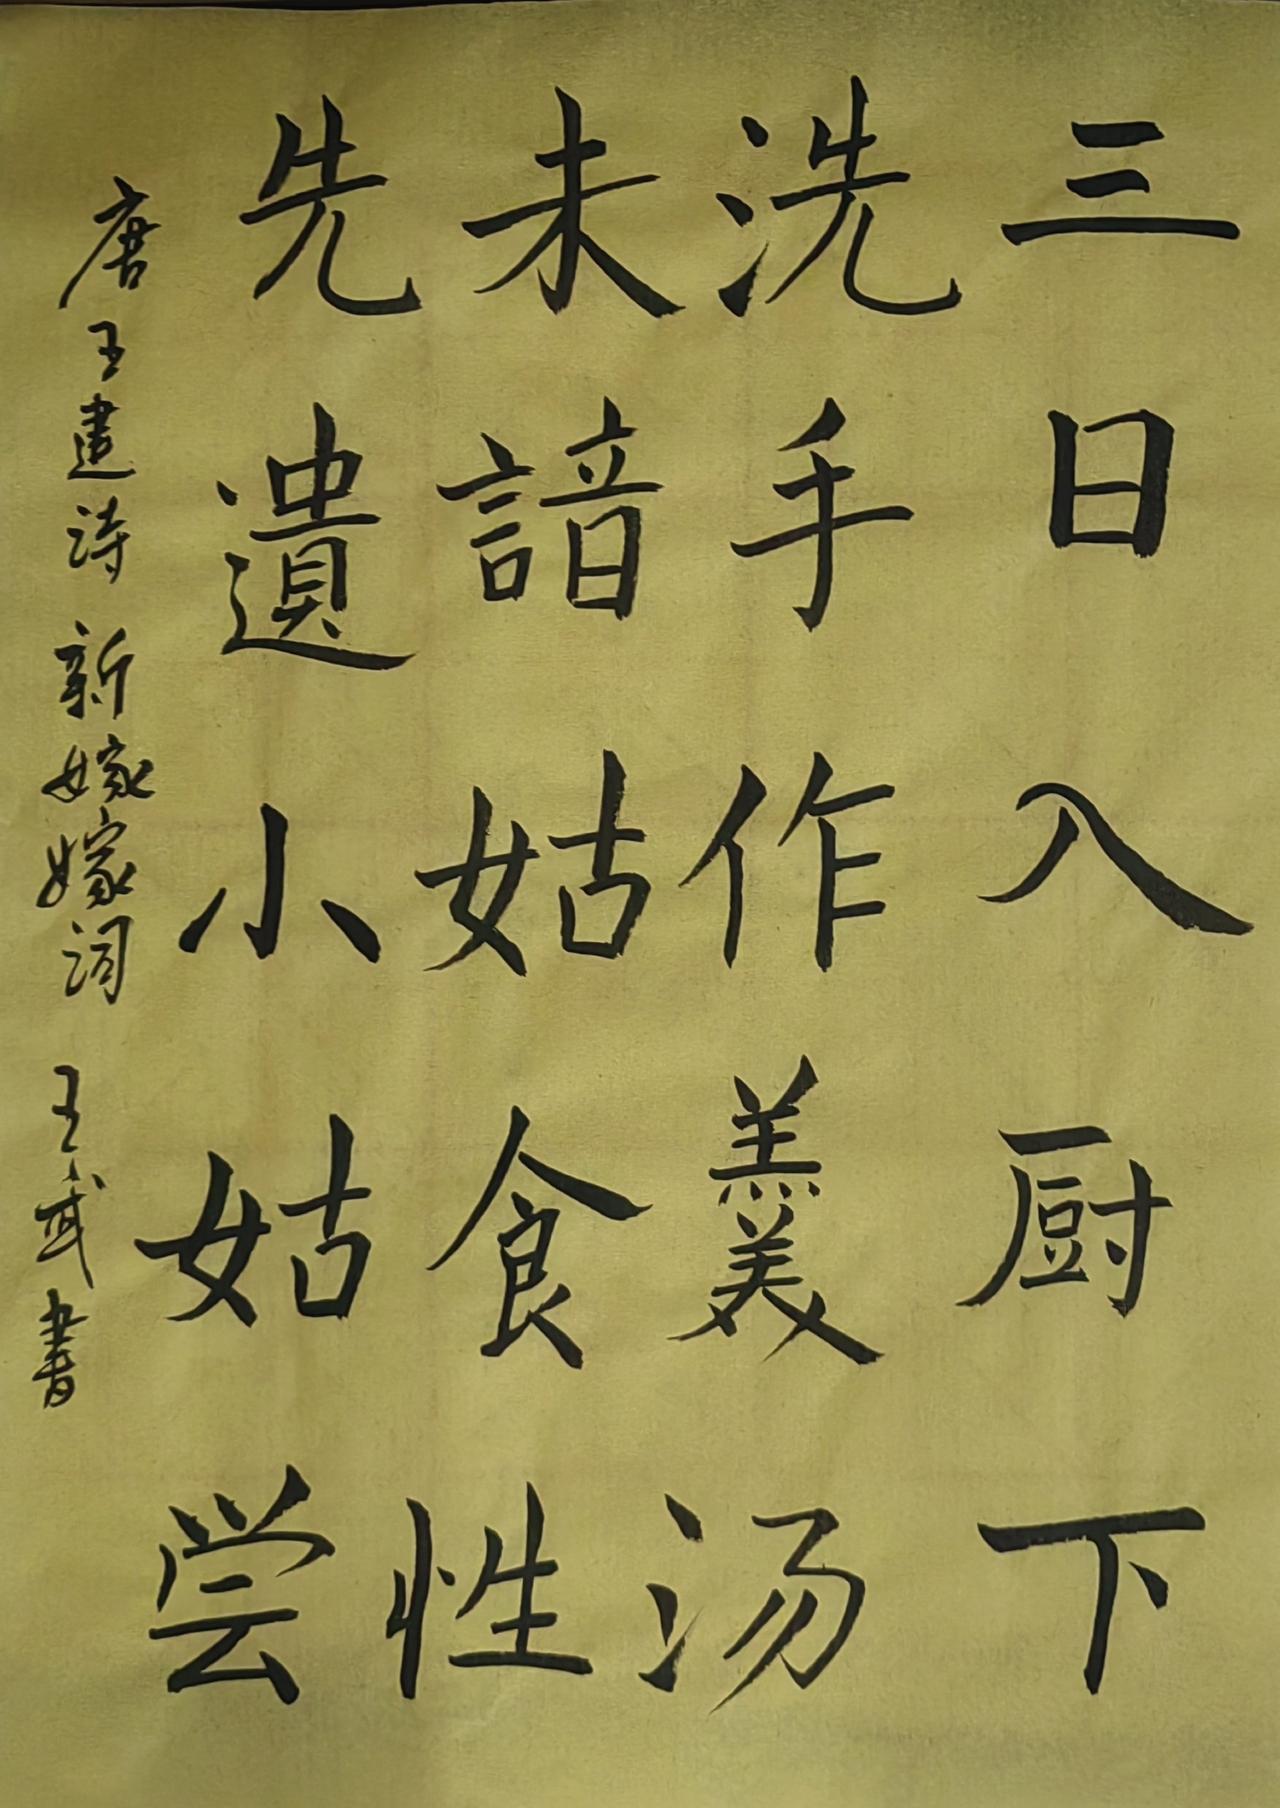 三日入厨下
洗手作羹汤
未諳姑食性
先遺小姑尝
唐王建诗新嫁嫁词 王武書